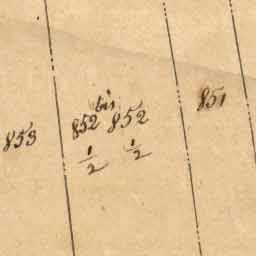 853
852 bis
1/2
852
1/2
851